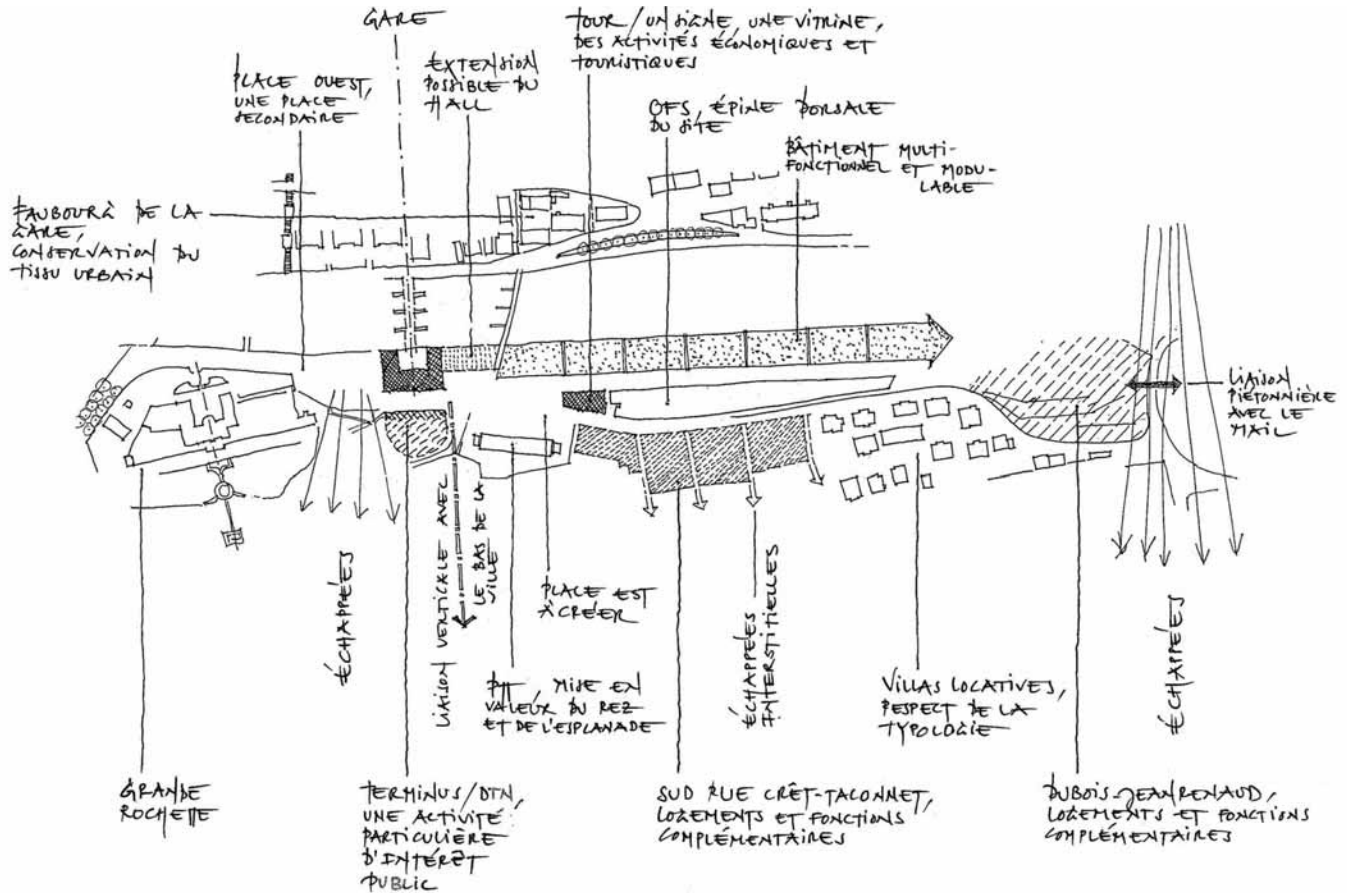 GARE
TOUR/UN SIGNE, UNE VITRINE,
DES ACTIVITÉS ÉCONOMIQUES ET
TOURISTIQUES
EXTENSION
POSSIBLE DU
HALL
PLACE OUEST,
UNE PLACE
SECONDAIRE
OFS, ÉPINE DORSALE
DU SITE
BÂTIMENT MULTI-
FONCTIONNEL ET MODU-
LABLE
FAUBOURG DE LA
GARE,
CONSERVATION DU
TISSU URBAIN
LIAISON
PIÉTONNIÈRE
AVEC LE
MAIL
ÉCHAPPÉES
LIAISON VERTICALE AVEC
LE BAS DE LA
VILLE
PLACE EST
À CRÉER
ÉCHAPPÉES
INTERSTITIELLES
ÉCHAPPÉES
PTT, MISE EN
VALEUR DU REZ
ET DE L'ESPLANADE
VILLAS LOCATIVES,
RESPECT DE LA
TYPOLOGIE
GRANDE
ROCHETTE
TERMINUS/DTN,
UNE ACTIVITÉ
PARTICULIÈRE
D'INTÉRÊT
PUBLIC
SUD RUE CRÊT-TACONNET,
LOGEMENTS ET FONCTIONS
COMPLÉMENTAIRES
DUBOIS-JEANRENAUD,
LOGEMENTS ET FONCTIONS
COMPLÉMENTAIRES